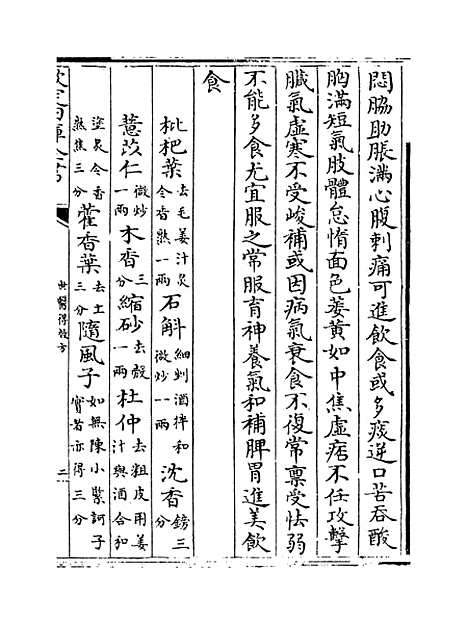 悶脇肋脹滿心腹刺痛可進飲食或多痰逆口苦吞酸
胸滿短氣肢體怠惰面色萎黃如中焦虛痞不任攻擊
臟氣虛寒不受峻補或因病氣衰食不復常禀受怯弱
不能多食尤宜服之常服育神養氣和補脾胃進美飲
食
枇杷葉去毛姜汁炙令香熟一兩石斛細剉酒拌和微炒一兩沈香鎊三分
薏苡仁微炒一兩木香三分縮砂去殼一兩杜仲去粗皮用姜汁與酒合和
塗炙令香熟焦三分藿香葉去土三分隨風子如無陳小緊訶子實者亦得三分
世醫得效方
二